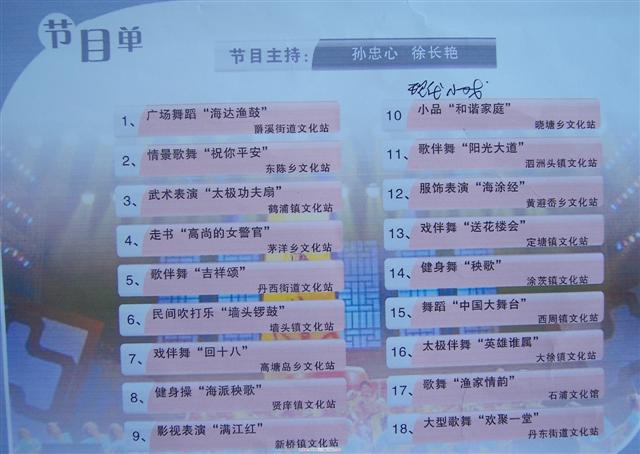 节目单
节目主持： 孙忠心 徐长艳
1、 广场舞蹈“海达渔鼓”
爵溪街道文化站
2、 情景歌舞“祝你平安”
东陈乡文化站
3、 武术表演“太极功夫扇”
鹤浦镇文化站
4、 走书“高尚的女警官”
茅洋乡文化站
5、 歌伴舞“吉祥颂”
丹西街道文化站
6、 民间吹打乐“墙头锣鼓”
墙头镇文化站
7、 戏伴舞“回十八”
高塘岛乡文化站
8、 健身操“海派秧歌”
贤庠镇文化站
9、 影视表演“满江红”
新桥镇文化站
现代小戏
10 小品“和谐家庭”
晓塘乡文化站
11、 歌伴舞“阳光大道”
泗洲头镇文化站
12、 服饰表演“海涂经”
黄避岙乡文化站
13、 戏伴舞“送花楼会”
定塘镇文化站
14、 健身舞“秧歌”
涂茨镇文化站
15、 舞蹈“中国大舞台”
西周镇文化站
16、 太极伴舞“英雄谁属”
大徐镇文化站
17、 歌舞“渔家情韵”
石浦文化馆
18、 大型歌舞“欢聚一堂”
丹东街道文化站